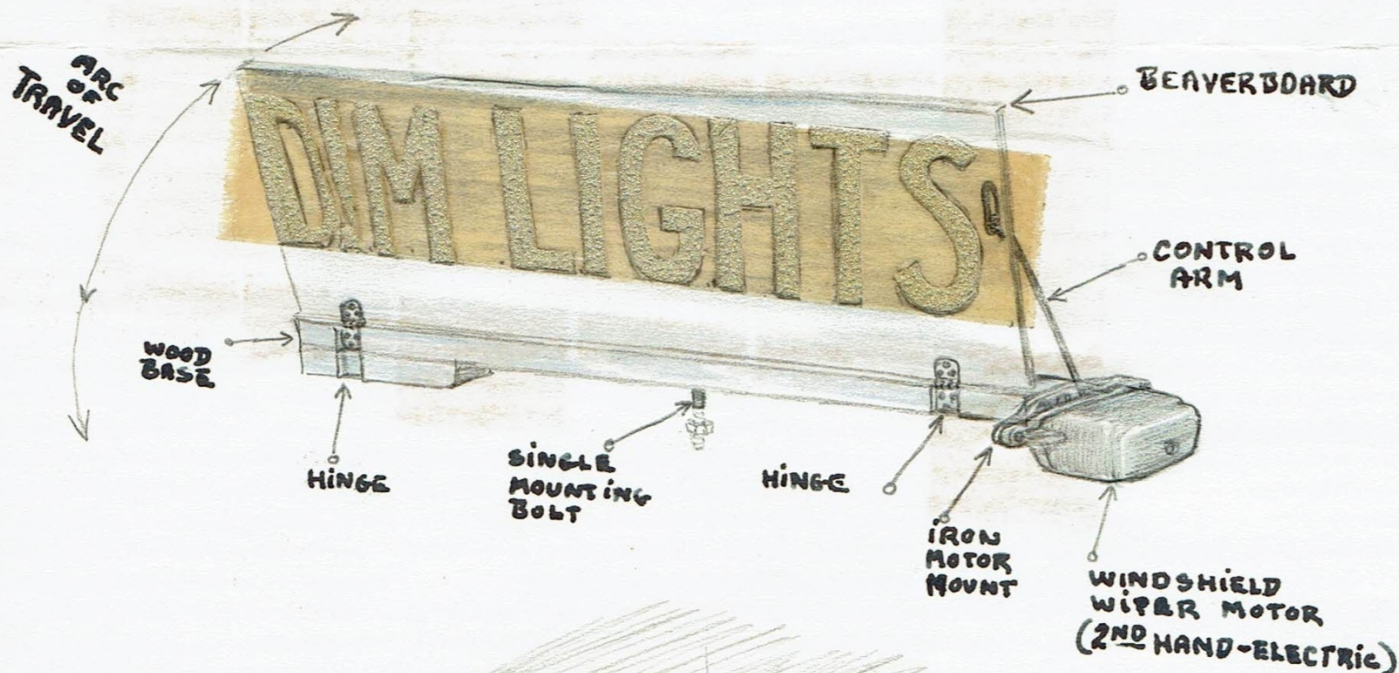 ARC
OF
TRAVEL
BEAVERBOARD
DIM LIGHTS
CONTROL
ARM
WOOD
BASE
HINGE
SINGLE
MOUNTING
BOLT
HINGE
IRON
MOTOR
MOUNT
WINDSHIELD
WIPER MOTOR
(2ND HAND-ELECTRIC)